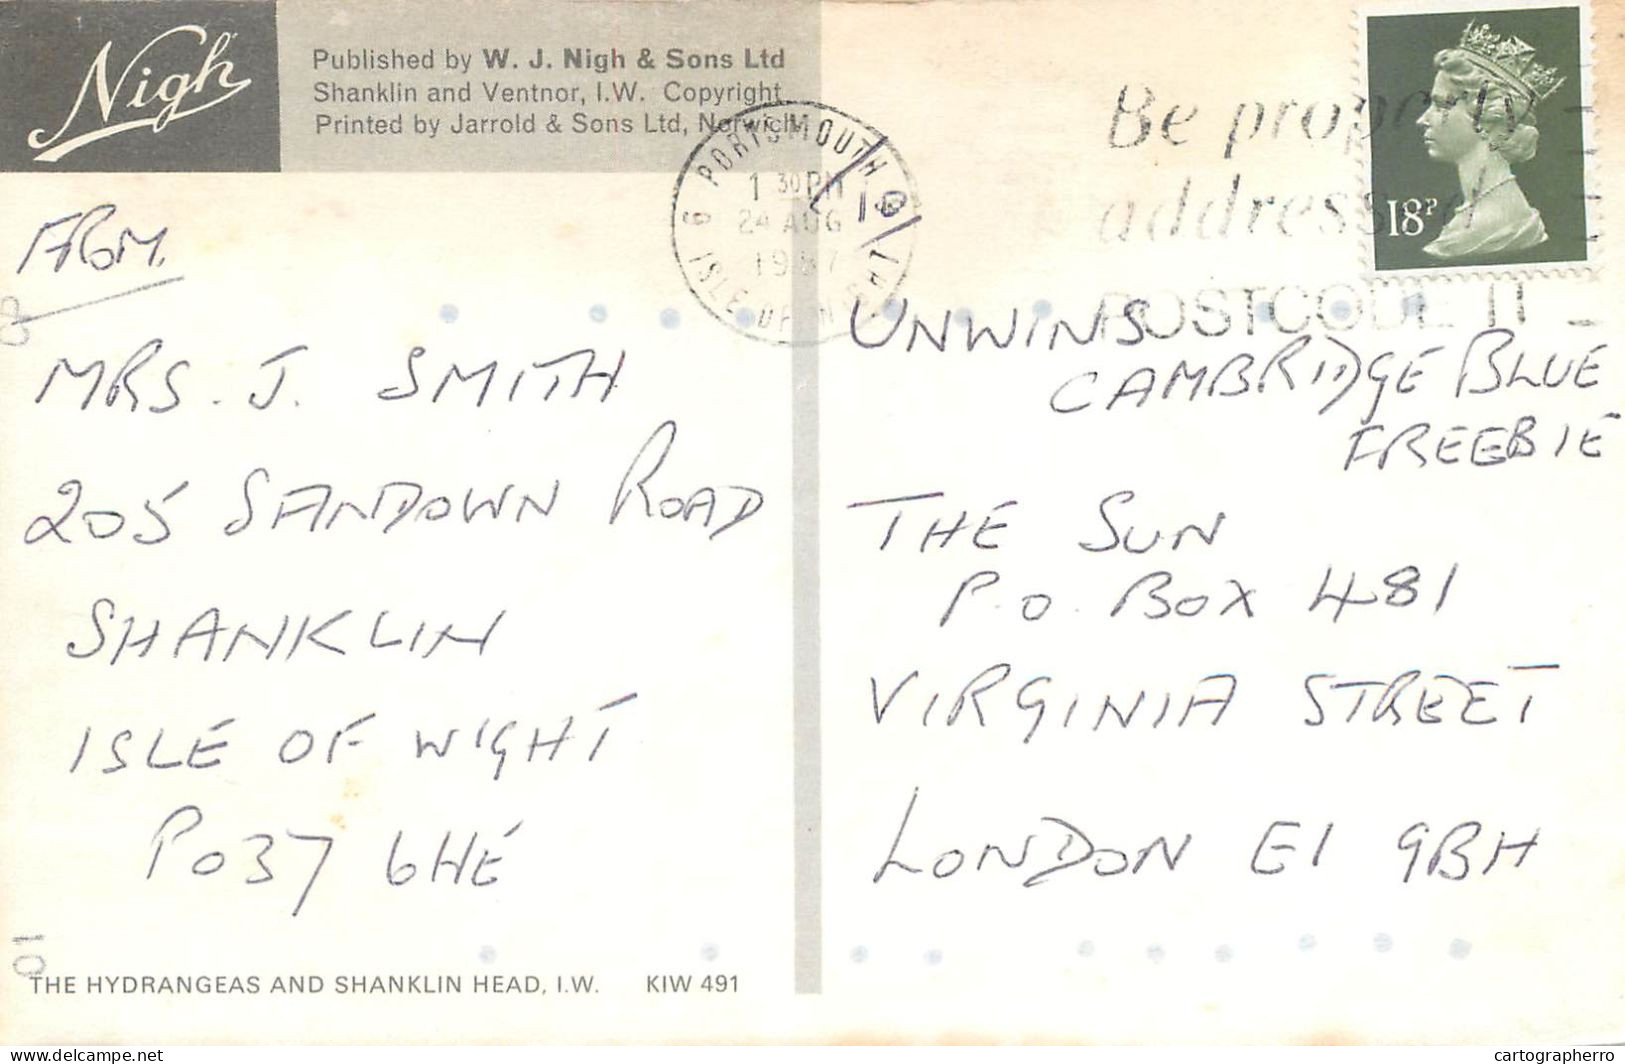 Nigh
Published by W. J. Nigh & Sons Ltd
Shanklin and Ventnor, I.W. Copyright
Printed by Jarrold & Sons Ltd, Norwich
PORTSMOUTH &
1 30 PM
24 AUG
1987
ISLE OF WIGHT
Be properly
addressed
POSTCODE IT
18P
FROM
MRS. J. SMITH
205 SANDOWN ROAD
SHANKLIN
ISLE OF WIGHT
PO37 6HE
UNWINS
CAMBRIDGE BLUE
FREEBIE
THE SUN
P.O. BOX 481
VIRGINIA STREET
LONDON E1 9BH
01
THE HYDRANGEAS AND SHANKLIN HEAD, I.W. KIW 491
cartographe.com cartographerro